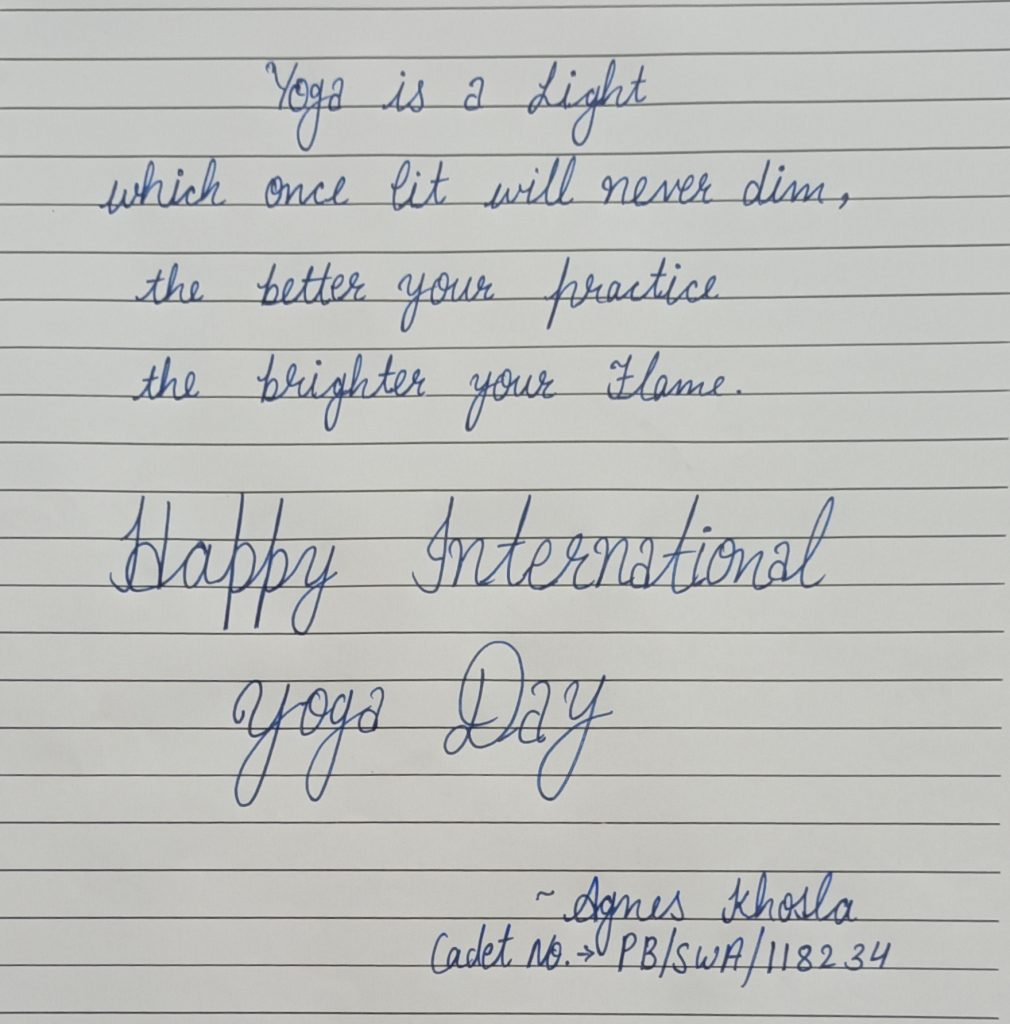 Yoga is a Light
which once lit will never dim,
the better your practice
the brighter your Flame.
Happy International
Yoga Day
~ Agnes Khosla
Cadet No.→ PB/SWA/118234